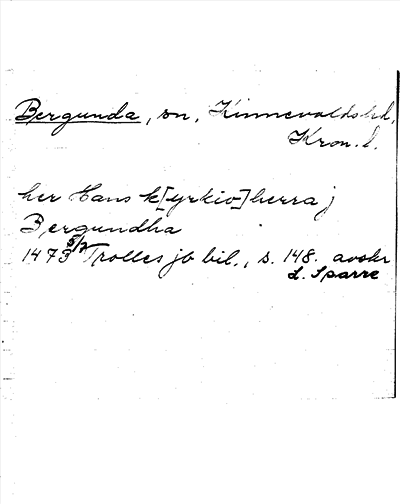 Bergunda, sn, Kinnevaldshd,
Kron. l.
her Hans k[yrkio]herra j
Bergundha
1473 5/7 Trolles jb bil., s. 148. avskr
L. Sparre